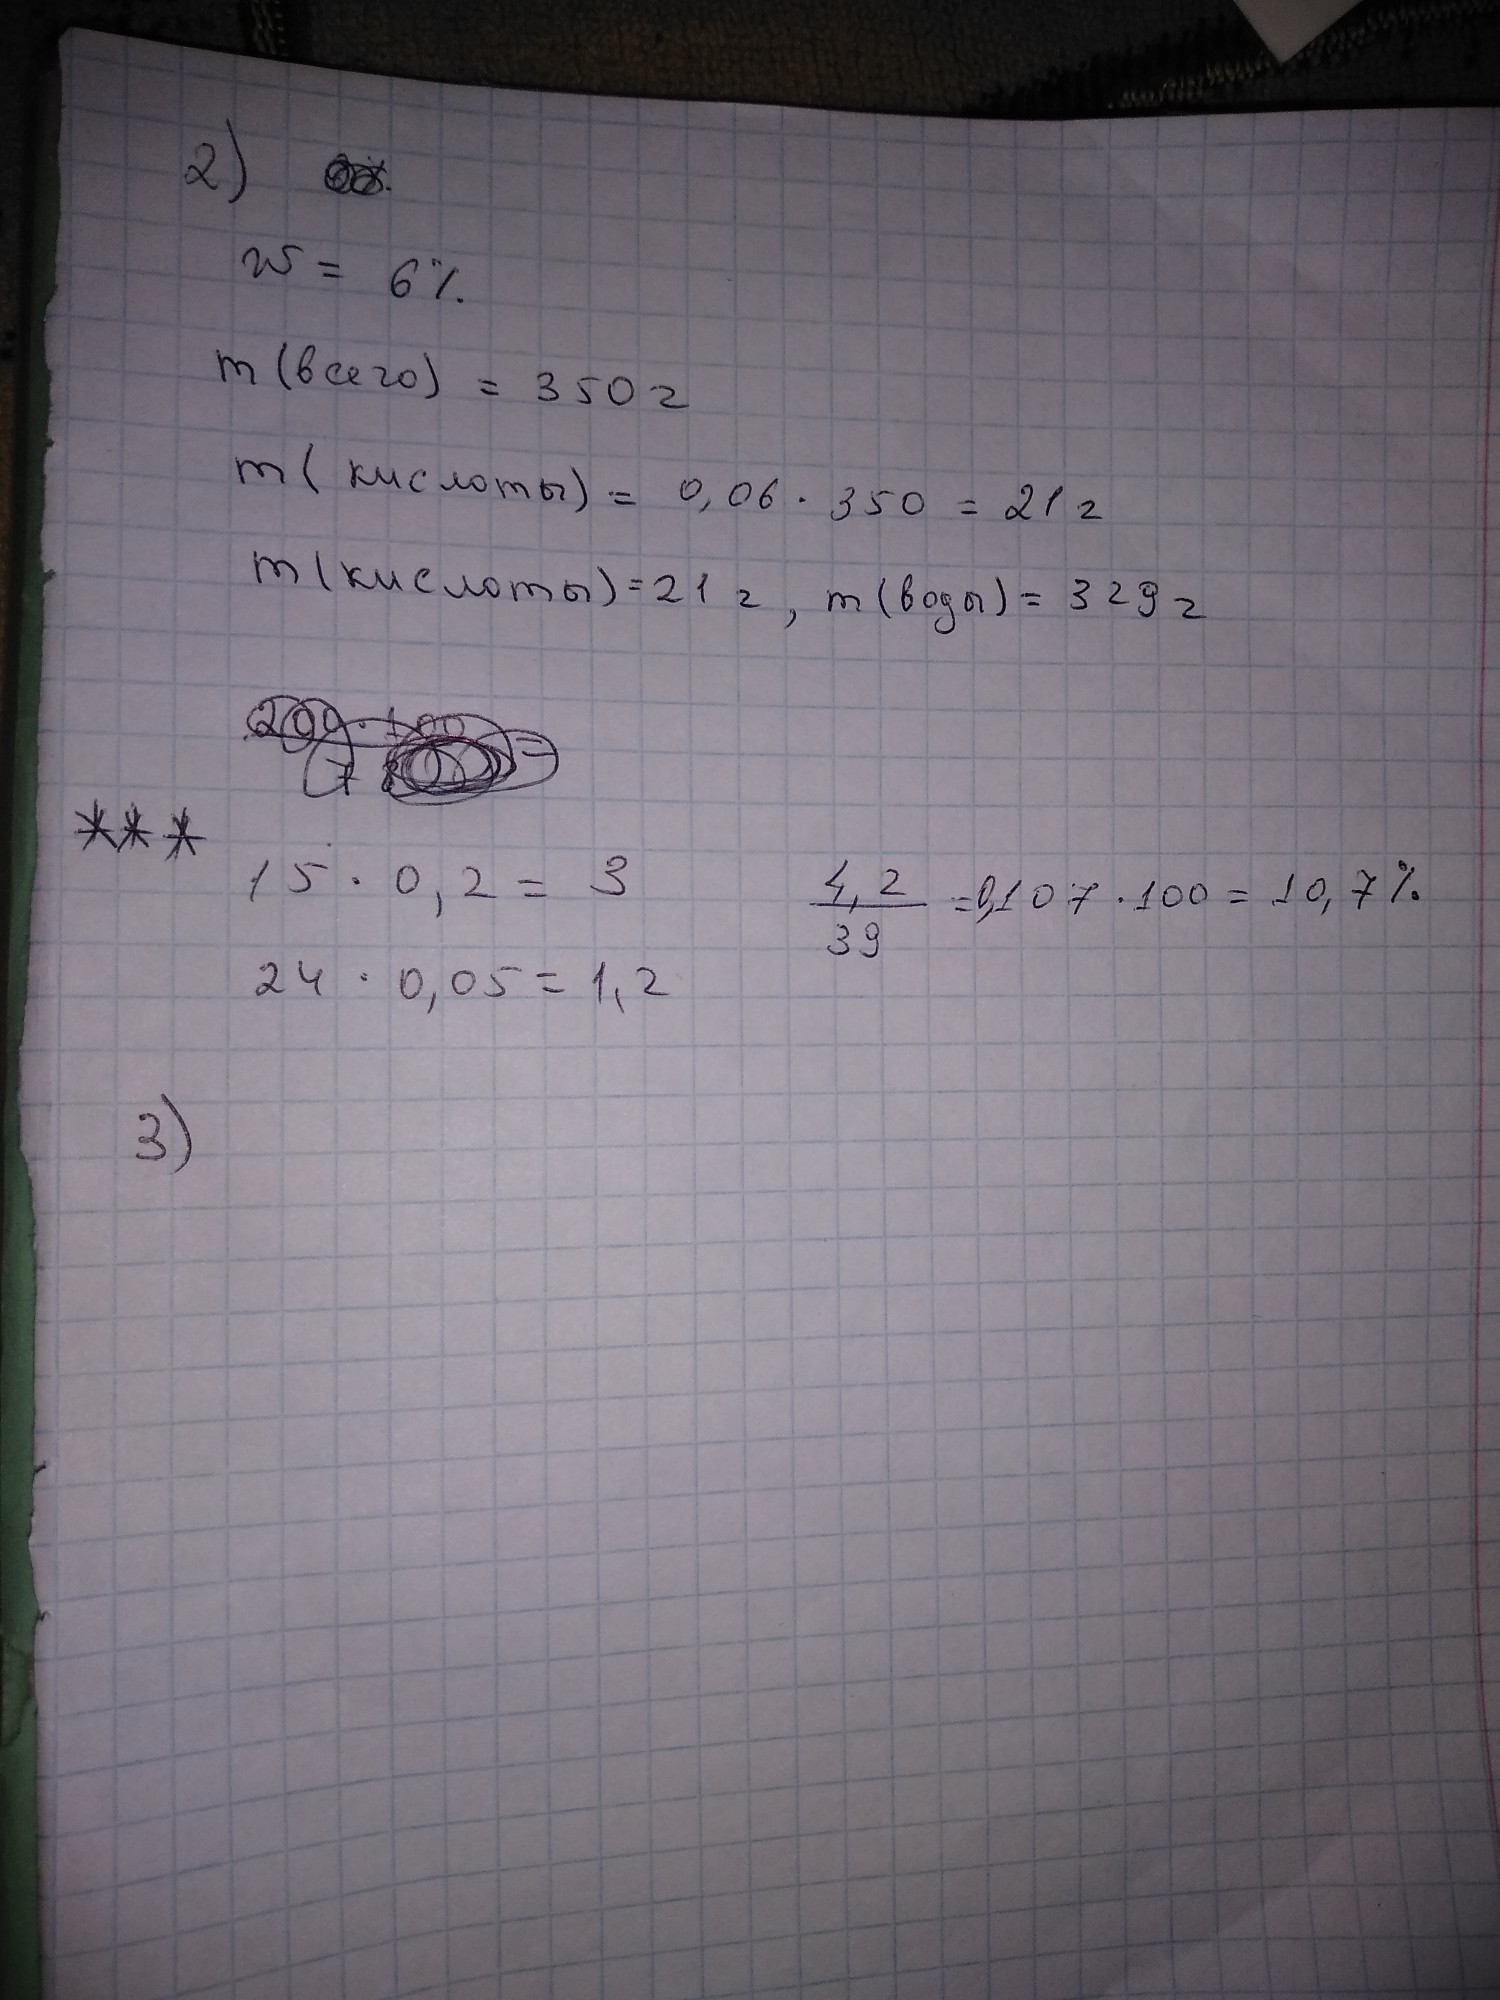 2)
w = 6%
m (всего) = 350 г
m ( кислоты) = 0,06 · 350 = 21 г
m (кислоты) = 21 г, m (воды) = 329 г
***
15 · 0,2 = 3
24 · 0,05 = 1,2
4,2
39
= 0,107 · 100 = 10,7%
3)